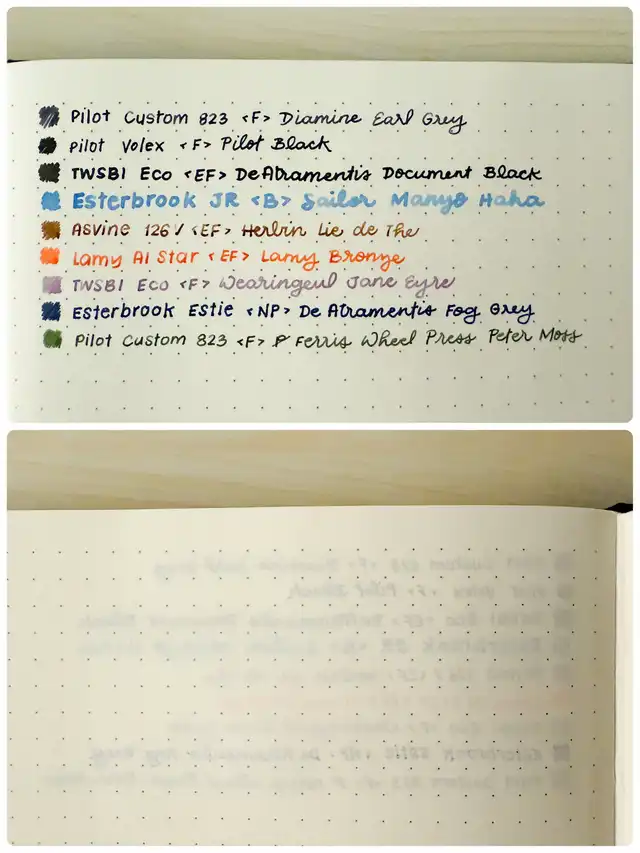 Pilot Custom 823 <F> Diamine Earl Grey
Pilot Volex <F> Pilot Black
TWSBI Eco <EF> De Atramentis Document Black
Esterbrook JR <B> Sailor Manyo Haha
Asvine 126V <EF> Herbin Lie de The
Lamy Al Star <EF> Lamy Bronze
TWSBI Eco <F> Wearingeul Jane Eyre
Esterbrook Estie <NP> De Atramentis Fog Grey
Pilot Custom 823 <F> Ferris Wheel Press Peter Moss